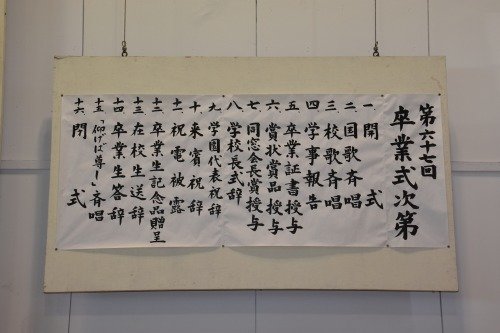 第六十七回
卒業式次第
一、開式
二、国歌斉唱
三、校歌斉唱
四、学事報告
五、卒業証書授与
六、賞状賞品授与
七、同窓会長賞授与
八、学校長式辞
九、学園代表祝辞
十、来賓祝辞
十一、祝電被露
十二、卒業生記念品贈呈
十三、在校生送辞
十四、卒業生答辞
十五、「仰げば尊し」斉唱
十六、閉式